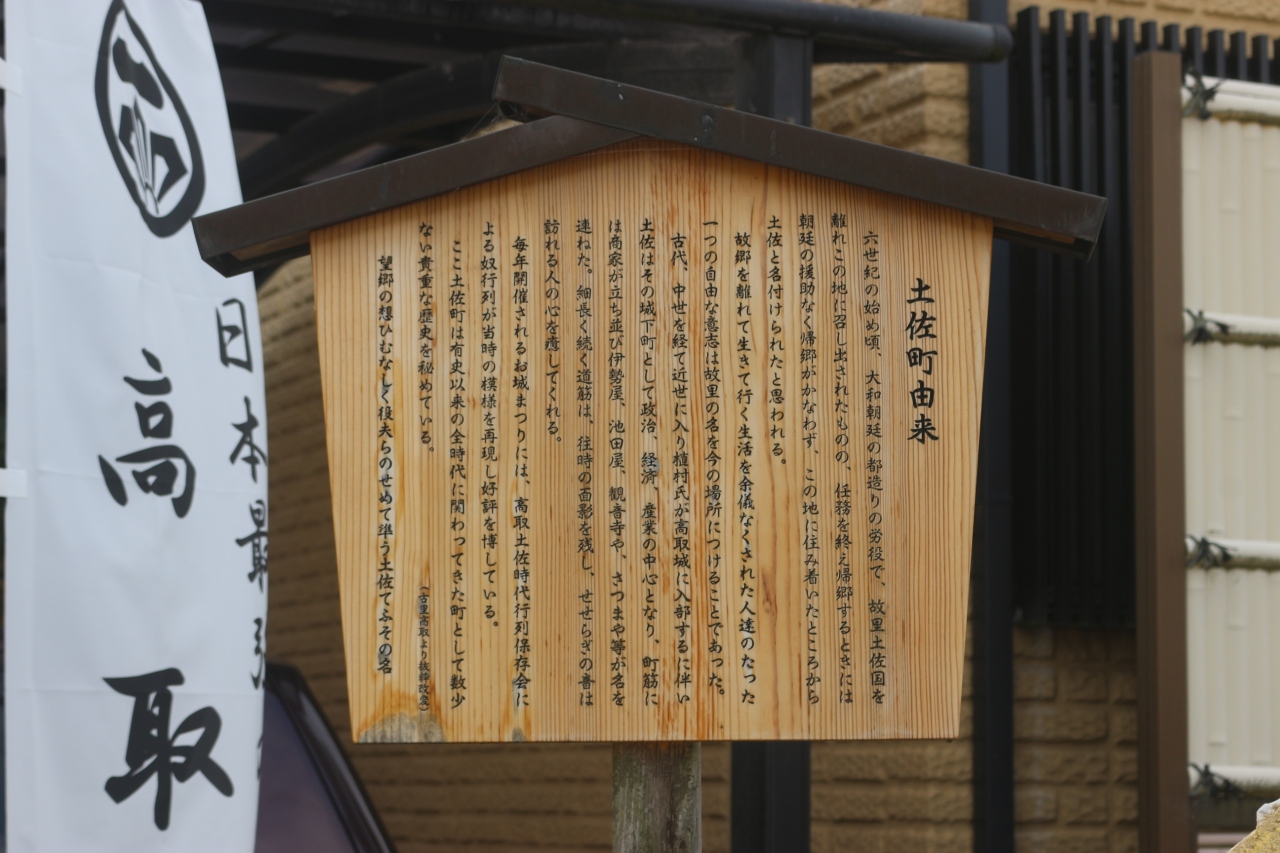 土佐町由来
六世紀の始め頃、大和朝廷の都造りの労役で、故里土佐国を
離れこの地に召し出されたものの、任務を終え帰郷するときには
朝廷の援助なく帰郷がかなわず、この地に住み着いたところから
土佐と名付けられたと思われる。
故郷を離れて生きて行く生活を余儀なくされた人達のたった
一つの自由な意志は故里の名を今の場所につけることであった。
古代、中世を経て近世に入り植村氏が高取城に入部するに伴い
土佐はその城下町として政治、経済、産業の中心となり、町筋に
は商家が立ち並び伊勢屋、池田屋、観音寺や、さつまや等が名を
連ねた。細長く続く道筋は、往時の面影を残し、せせらぎの音は
訪れる人の心を癒してくれる。
毎年開催されるお城まつりには、高取土佐時代行列保存会に
よる奴行列が当時の模様を再現し好評を博している。
ここ土佐町は有史以来の全時代に関わってきた町として数少
ない貴重な歴史を秘めている。
(古里高取より抜粋改変)
望郷の想ひむなしく役夫らのせめて準う土佐てふその名
日本最
高取